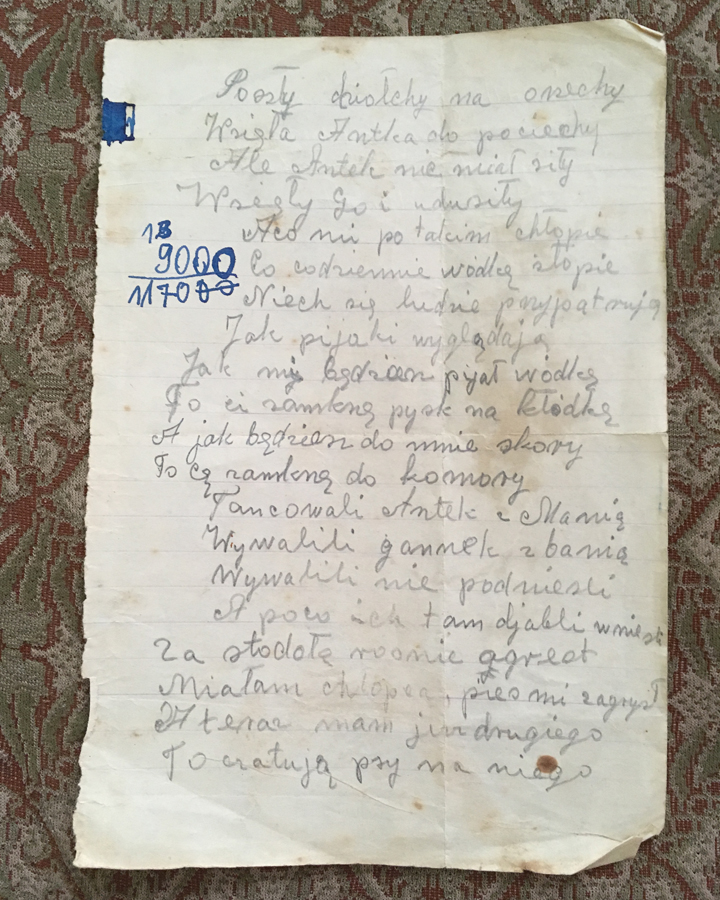 Poszły dziołchy na orzechy
Wzięła Antka do pociechy
Ale Antek nie miał siły
Wzięły Go i udusiły
A co mi po takim chłopie
Co codziennie wódkę złopie
Niech się ludzie przypatrują
Jak pijaki wyglądają
Jak my będziesz pijał wódkę
To ci zamknę pysk na kłódkę
A jak będziesz do mnie skory
To cę zamknę do komory
Tancowali Antek z Manią
Wywalili gannek z banią
Wywalili nie podniesli
A poco ich tam djabli wniesli
Za stodołą rośnie agrest
Miałam chłopca, pies mi zagrysł
A teraz mam już drugiego
To cratują psy na niego
13
9000
117000